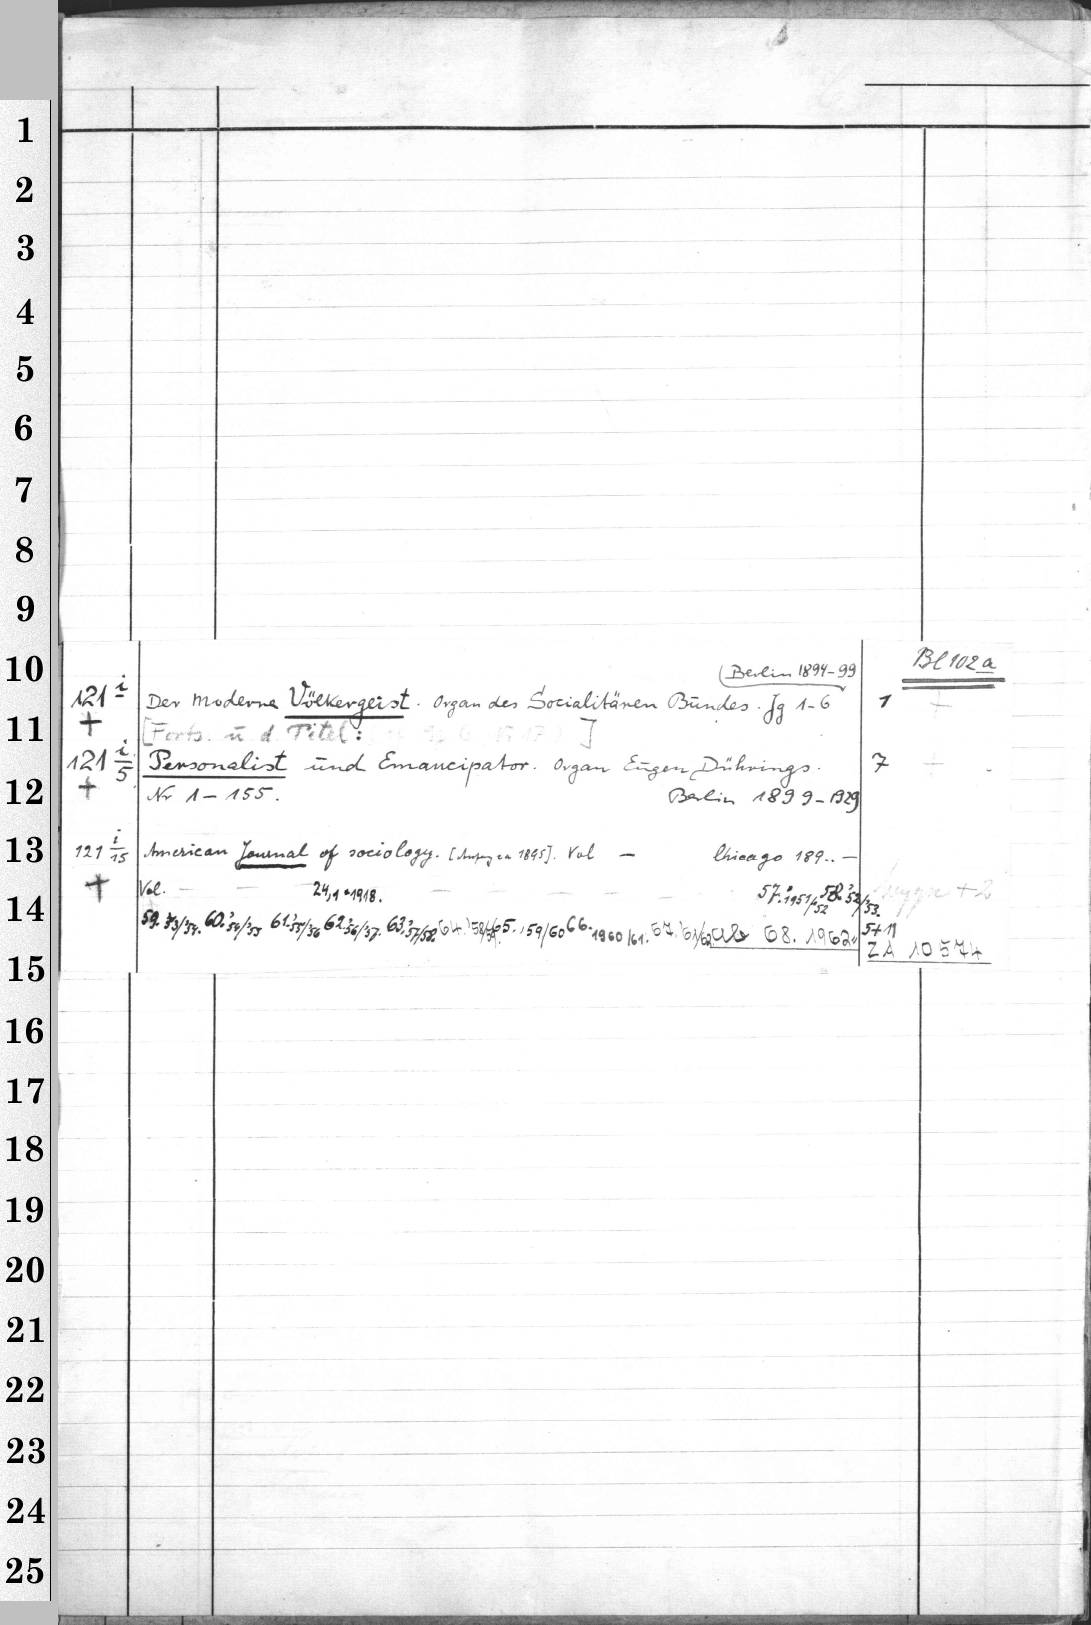 1
2
3
4
5
6
7
8
9
10
Bl 102a
(Berlin 1894-99
121 i Der Moderne Völkergeist. Organ des Socialitären Bundes. Jg 1-6 1
+
11
[Forts. u d. Titel: ]
121 i/5 Personalist und Emancipator. Organ Eugen Dührings. 7
+
12
Nr 1 - 155. Berlin 1899-1929
13
121 i/15 American Journal of sociology. 1895]. Vol — Chicago 189.. —
+
Vol. — — 24,1 1918. — — — 57. 1951/52 58. '52/53. + 2
14
59. 53/54. 60. '54/55 61. '55/56 62. '56/57. 63. '57/58. (64.) 58/59. 65. '59/60 66. 1960/61. 67. '61/62 ab 68. 1962 5+11
ZA 10574
15
16
17
18
19
20
21
22
23
24
25